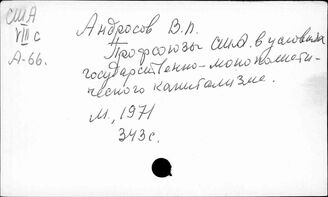 США
VIII с
А-66.
Андросов В.П.
Профсоюзы США в условиях
государственно-монополисти-
ческого капитализма.
М., 1971
343 с.